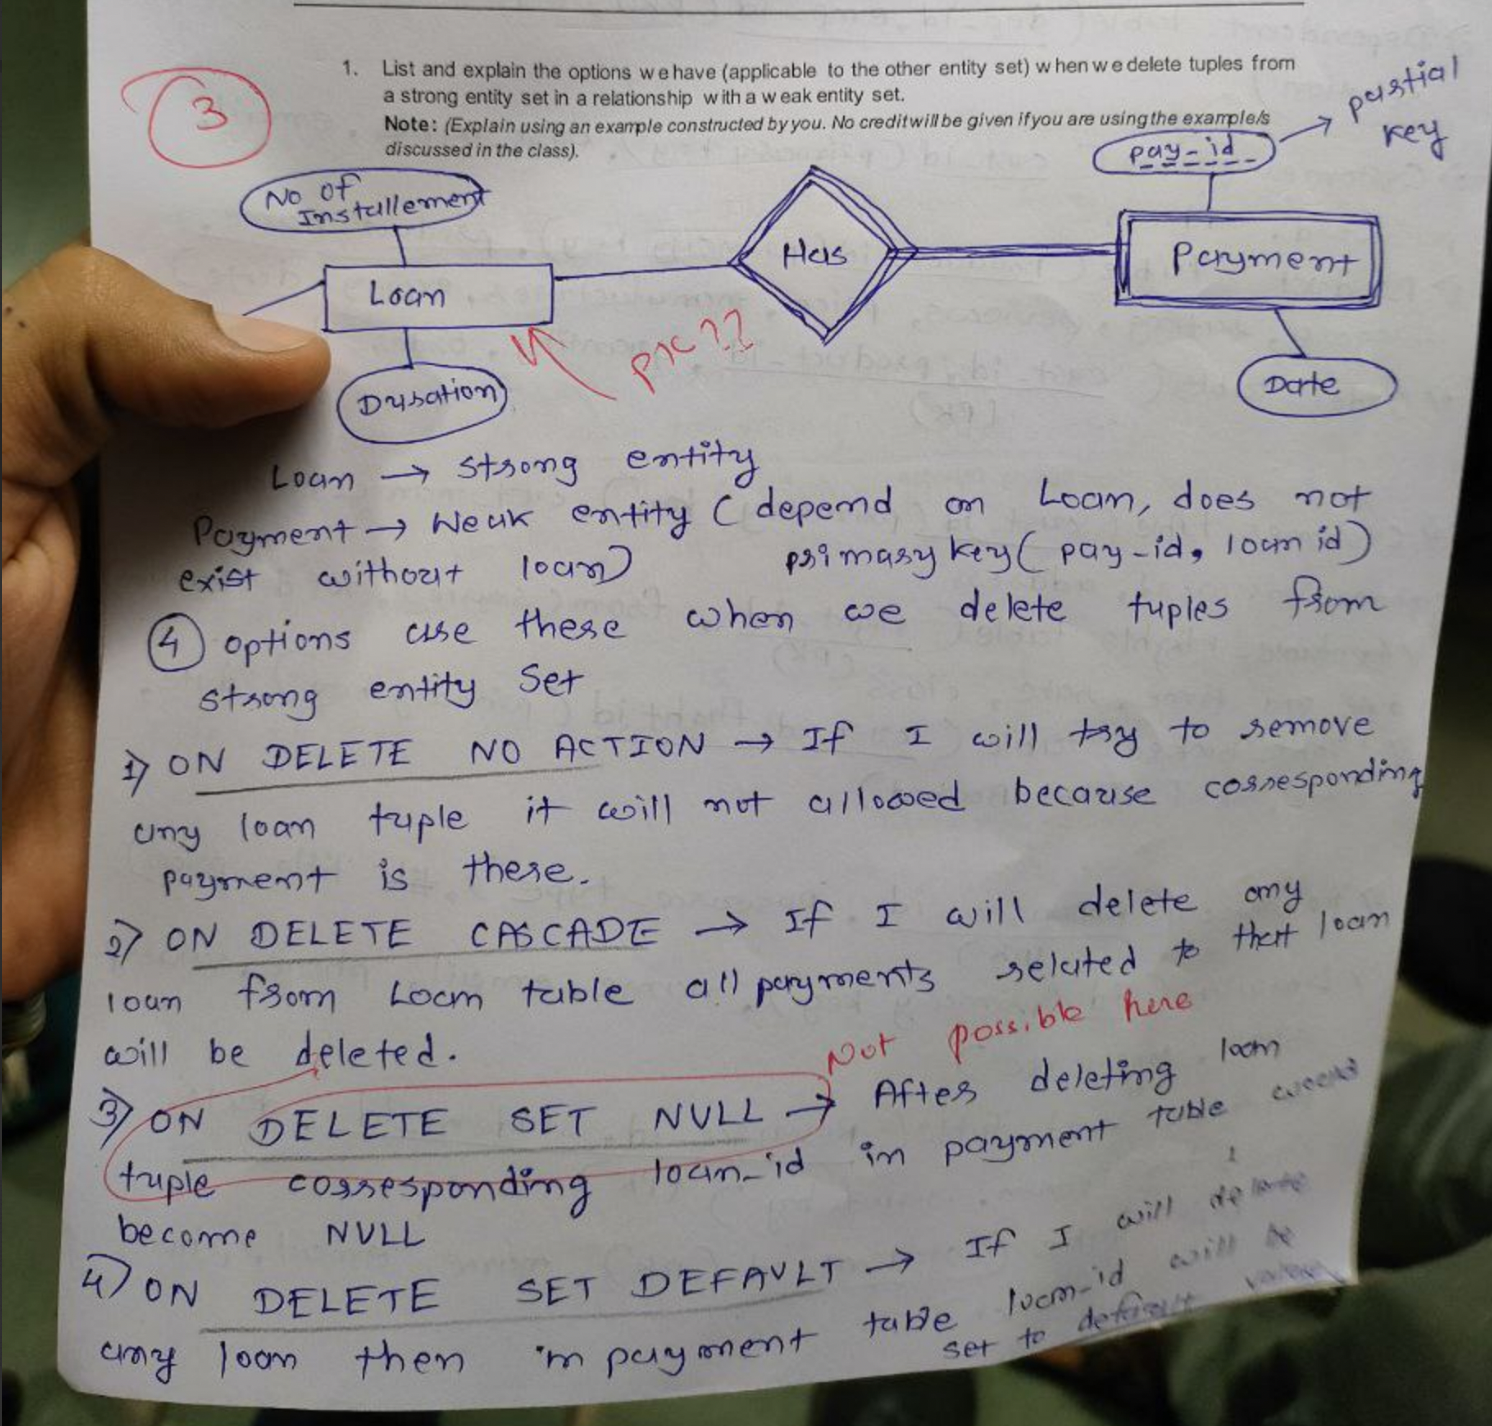 3
1. List and explain the options we have (applicable to the other entity set) when we delete tuples from
a strong entity set in a relationship with a weak entity set.
Note: (Explain using an example constructed by you. No credit will be given if you are using the example/s
discussed in the class).
partial
key
pay-id
No of
Installement
Has
Payment
Loan
PK??
Duration
Date
Loan → strong entity
Payment → Weak entity (depend on Loan, does not
exist without loan) primary key (pay-id, loan id)
4 options are there when we delete tuples from
strong entity Set
1) ON DELETE NO ACTION → If I will try to remove
any loan tuple it will not allowed because corresponding
payment is there.
2) ON DELETE CASCADE → If I will delete any
loan from Loan table all payments related to that loan
will be deleted.
Not possible here
3) ON DELETE SET NULL → After deleting loan
tuple corresponding loan_id in payment table
become NULL
4) ON DELETE SET DEFAULT → If I will delete
any loan then in payment table loan-id will be
set to default